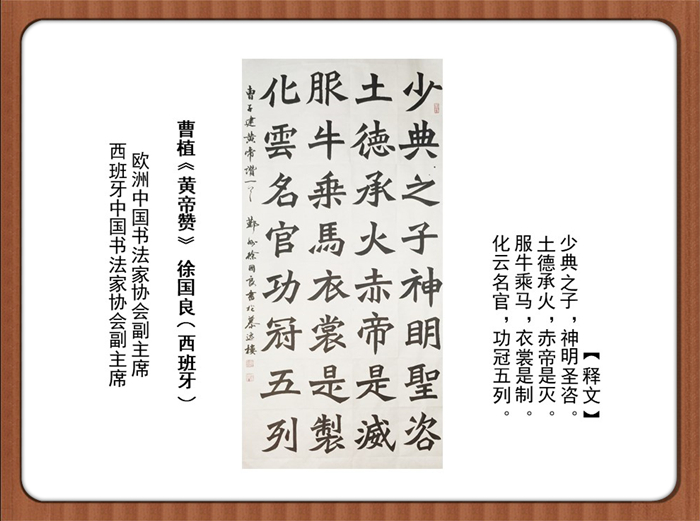 【释文】
少典之子，神明圣咨。
土德承火，赤帝是灭。
服牛乘马，衣裳是制。
化云名官，功冠五列。
少典之子神明聖咨
土德承火赤帝是滅
服牛乘馬衣裳是製
化雲名官功冠五列
曹子建黄帝讚一 徐国良書於
曹植《黄帝赞》 徐国良（西班牙）
欧洲中国书法家协会副主席
西班牙中国书法家协会副主席